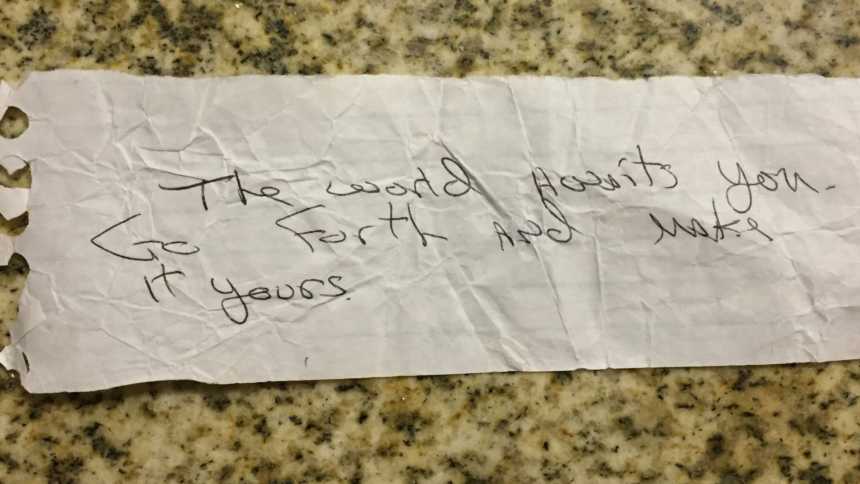 The world Awaits you.
Go Forth AND Make
it yours.